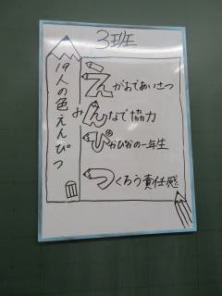 3班
19人の色えんぴつ
えがおであいさつ
みんなで協力
ぴかぴかの一年生
つくろう責任感